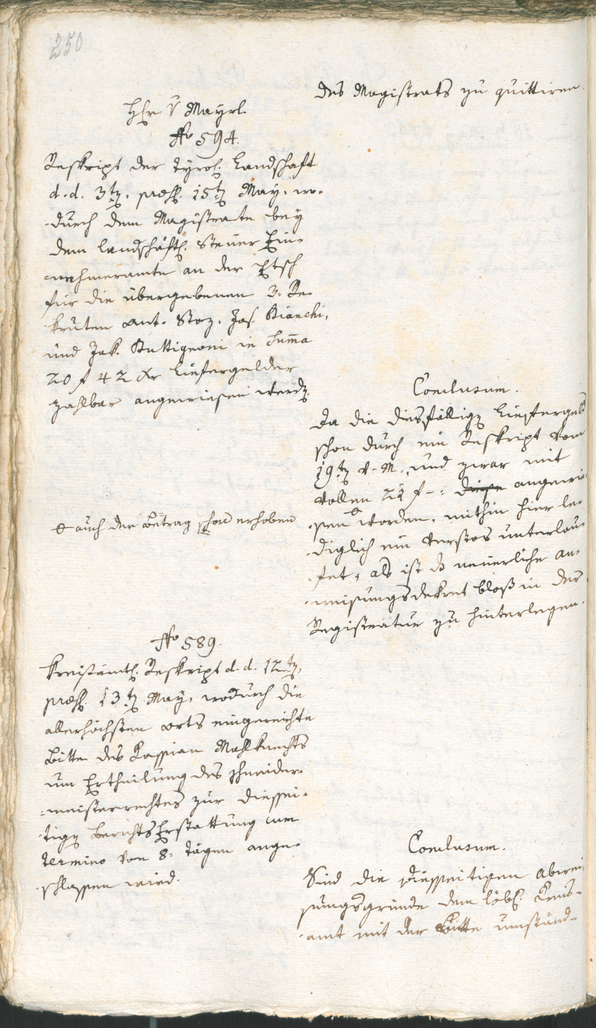 250
des Magistrats zu quittiren.
H. v Mayrl.
No 594.
Reskript der Tyrol. Landschaft
d.d. 3ten, praes. 15ten May, wo-
durch dem Magistrate bey
dem landschäftl. Steuer Ein-
nehmeramte an der Etsch
für die übergebenen 3. Re-
kruten Ant. Stoz, Jos. Bianchi,
und Jak. Buttignoni in Summa
20 f 42 xr Liefergelder
zahlbar angewiesen werden.
Conclusum.
Da die diesfällige Liefergeld
schon durch ein Reskript vom
19ten v. M. und zwar mit
vollen 21 f -: angewie-
sen worden, mithin hier le-
diglich ein Verstos unterlau-
fet, als ist das neuerliche An-
weisungsdekret bloß in der
Registratur zu hinterlegen.
auch der Betrag schon erhoben
No 589.
Kreisämtl. Reskript d.d. 12ten,
praes. 13ten May, wodurch die
allerhöchsten Orts eingereichte
Bitte des Kassian Mahlknechts
um Ertheilung des Schneider-
meisterrechtes zur diessei-
tigen Berichts Erstattung cum
Termino von 8. Tägen ange-
schlossen wird.
Conclusum.
Sind die diesseitigen Abwei-
sungsgründe dem löbl. Kreis-
amt mit der Bitte umständ-